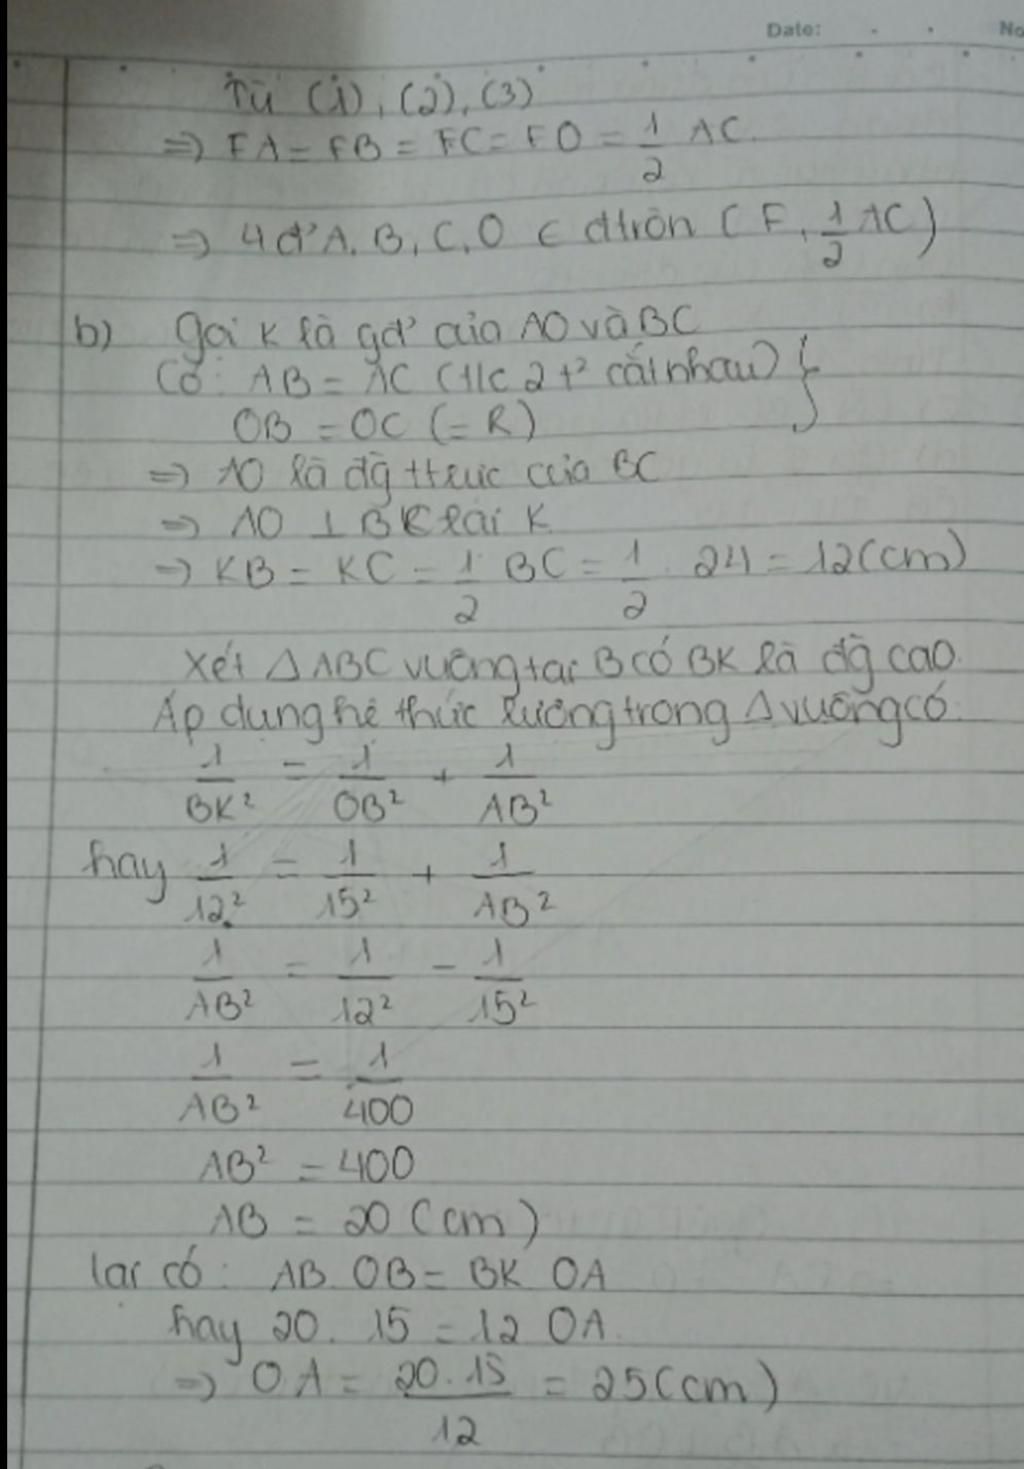 Date: No
Từ (1), (2), (3)
=> FA = FB = FC = FO = 1/2 AC
=> 4 đ' A, B, C, O ∈ đtròn (F, 1/2 AC)
b) Gọi K là gđ' của AO và BC
Có: AB = AC (t/c 2 t² cắt nhau) }
OB = OC (= R)
=> AO là đg ttrực của BC
=> AO ⊥ BC tại K
=> KB = KC = 1/2 BC = 1/2 . 24 = 12 (cm)
Xét Δ ABC vuông tại B có BK là đg cao.
Áp dụng hệ thức lượng trong Δ vuông có
1/BK² = 1/OB² + 1/AB²
hay 1/12² = 1/15² + 1/AB²
1/AB² = 1/12² - 1/15²
1/AB² = 1/400
AB² = 400
AB = 20 (cm)
lại có: AB. OB = BK OA
hay 20. 15 = 12 OA.
=> OA = 20.15/12 = 25 (cm)